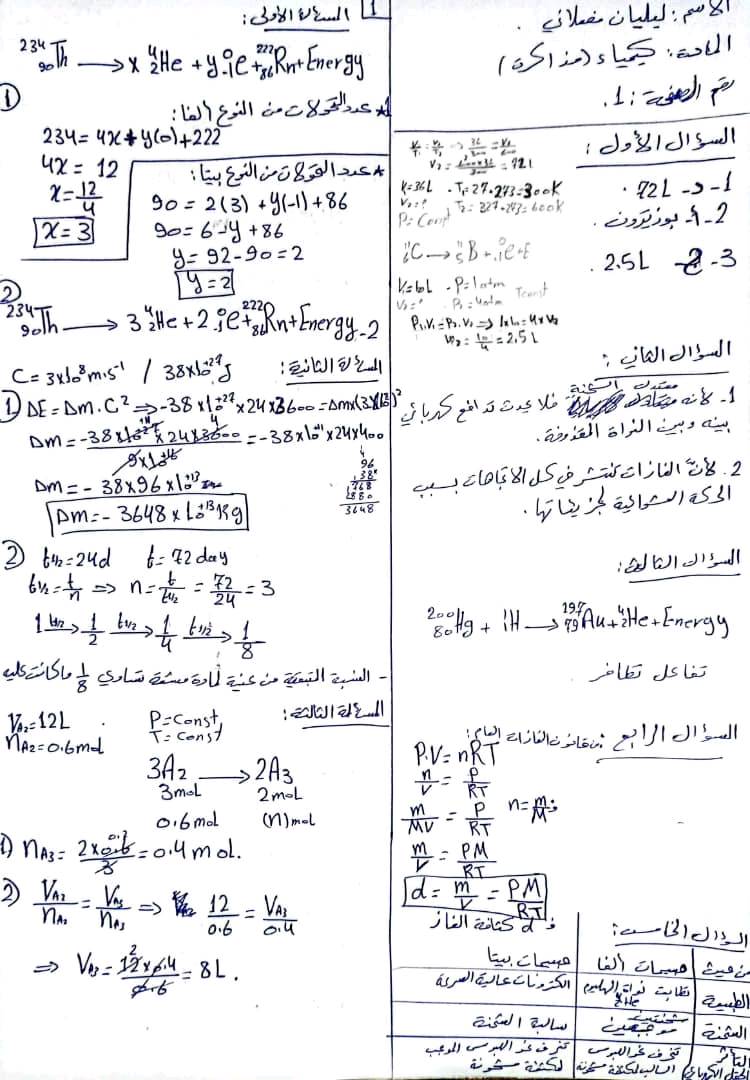 الاسم: ليليان مفعلاني
المادة: كيمياء (مذاكرة)
رقم الصفحة: 1.
السؤال الأول:
1- د- 72L.
2- أ- بوزيترون.
3- 2.5L
V₁/T₁ = V₂/T₂ → 36/300 = V₂/600
V₂ = 600×36/300 = 72L
V=36L - T₁=27+273=300K
V₂=? T₂=327+273=600K
P=Const
¹¹₆C → ¹¹₅B + ⁰₊₁e + E
V=10L - P=1atm
V₂=? P₂=4atm Tconst
P₁.V₁=P₂.V₂ ⇒ 1×10=4×V₂
V₂ = 10/4 = 2.5L
السؤال الثاني:
1- لأنه معتدل الشحنة فلا يحدث تدافع كهربائي
بينه وبين النواة المقذوفة.
2. لأنّ الغازات تنتشر في كل الاتجاهات بسبب
الحركة العشوائية لجزيئاتها.
السؤال الثالث:
²⁰⁰₈₀Hg + ¹₁H → ¹⁹⁷₇₉Au + ⁴₂He + Energy
تفاعل تطافر.
السؤال الرابع: من قانون الغازات العام:
P.V = nRT
n/V = P/RT
m/MV = P/RT n = m/M
m/V = PM/RT
d = m/V = PM/RT
d كثافة الغاز
السؤال الخامس:
من حيث | جسيمات ألفا | جسيمات بيتا
الطبيعة | تطابق نواة الهليوم ⁴₂He | الكترونات عالية السرعة
الشحنة | شحنتين موجبتين | سالبة الشحنة
التأثر | تنحرف نحو اللبوس | تنحرف نحو اللبوس الموجب
بالحقل الكهربائي | السالب لمكثفة مشحونة | لمكثفة مشحونة
1 المسألة الأولى:
²³⁴₉₀Th → x ⁴₂He + y ⁰₋₁e + ²²²₈₆Rn + Energy
① * عدد التحولات من النوع ألفا:
234 = 4x + y(0) + 222
4x = 12
x = 12/4
x = 3
* عدد التحولات من النوع بيتا:
90 = 2(3) + y(-1) + 86
90 = 6 - y + 86
y = 92 - 90 = 2
y = 2
②
²³⁴₉₀Th → 3 ⁴₂He + 2 ⁰₋₁e + ²²²₈₆Rn + Energy -2
المسألة الثانية:
C = 3×10⁸ m.s⁻¹ / 38×10²⁷ J
① ΔE = Δm.C² ⇒ -38×10²⁷×24×3600 = Δm×(3×10⁸)²
Δm = -38×10²⁷×24×3600 / 9×10¹⁶ = -38×10¹¹×24×400
Δm = -38×96×10¹³
Δm = -3648×10⁺¹³ Kg
96
38×
768
2880
3648
② t½ = 24d t = 72 day
t½ = t/n ⇒ n = t/t½ = 72/24 = 3
1 t½→ 1/2 t½→ 1/4 t½→ 1/8
- النسبة المتبقية من عينة لمادة مشعة تساوي 1/8 ما كانت عليه
المسألة الثالثة:
V_A₂ = 12L P=Const,
n_A₂ = 0.6mol T=const
3A₂ → 2A₃
3mol 2mol
0.6mol (n)mol
1) n_A₃ = 2×0.6/3 = 0.4 mol.
2) V_A₂/n_A₂ = V_A₃/n_A₃ ⇒ 12/0.6 = V_A₃/0.4
⇒ V_A₃ = 12×0.4/0.6 = 8L.